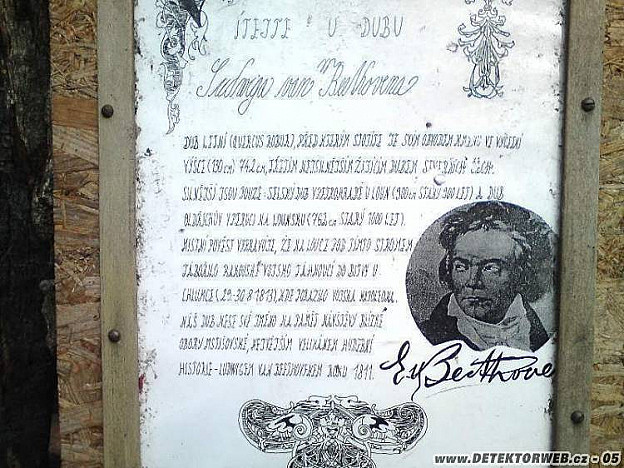 ÍTEJTE U DUBU
Ludwiga van Beethovena
DUB LETNÍ (QUERCUS ROBUR), PŘED KTERÝM STOJÍTE JE SVÝM OBVODEM KMENE VE VÝČETNÍ
VÝŠCE (130 cm) 742 cm, TŘETÍM NEJSILNĚJŠÍM ŽIJÍCÍM DUBEM SEVERNÍCH ČECH.
SILNĚJŠÍ JSOU POUZE - SELSKÝ DUB VZESTOHRADĚ U LOUN (900 cm STARÝ 900 LET) A DUB
OLDŘICHŮV V PERUCI NA LOUNSKU (762 cm STARÝ 1000 LET).
MÍSTNÍ POVĚST VYPRAVUJE, ŽE NA LOUCE POD TÍMTO STROMEM
TÁBOŘILO RAKOUSKÉ VOJSKO TÁHNOUCÍ DO BITVY U
CHLUMCE (29.-30.8.1813), KDE PORAZILO VOJSKA NAPOLEONA.
NÁŠ DUB NESE SVÉ JMÉNO NA PAMĚŤ NÁVŠTĚVY BLÍZKÉ
OBORY MSTIŠOVSKÉ, NEJVĚTŠÍM VELIKÁNEM HUDEBNÍ
HISTORIE - LUDWIGEM VAN BEETHOVENEM ROKU 1811.
Beethove
www.DETEKTORWEB.cz - 05